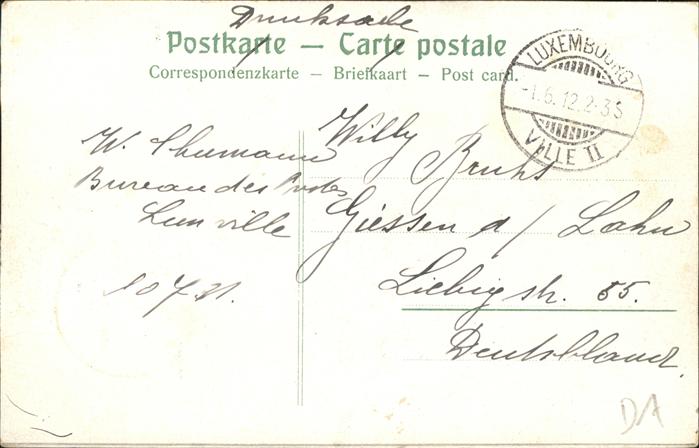 Drucksache
Postkarte — Carte postale
Correspondenzkarte — Briefkaart — Post card.
LUXEMBOURG
-1.6.12.2-3S
VILLE II
W. Schumann
Bureau des Postes
Lux ville
Willy
Bruhs
Giessen a/ Lahn
Liebigstr. 55.
Deutschland.
DA